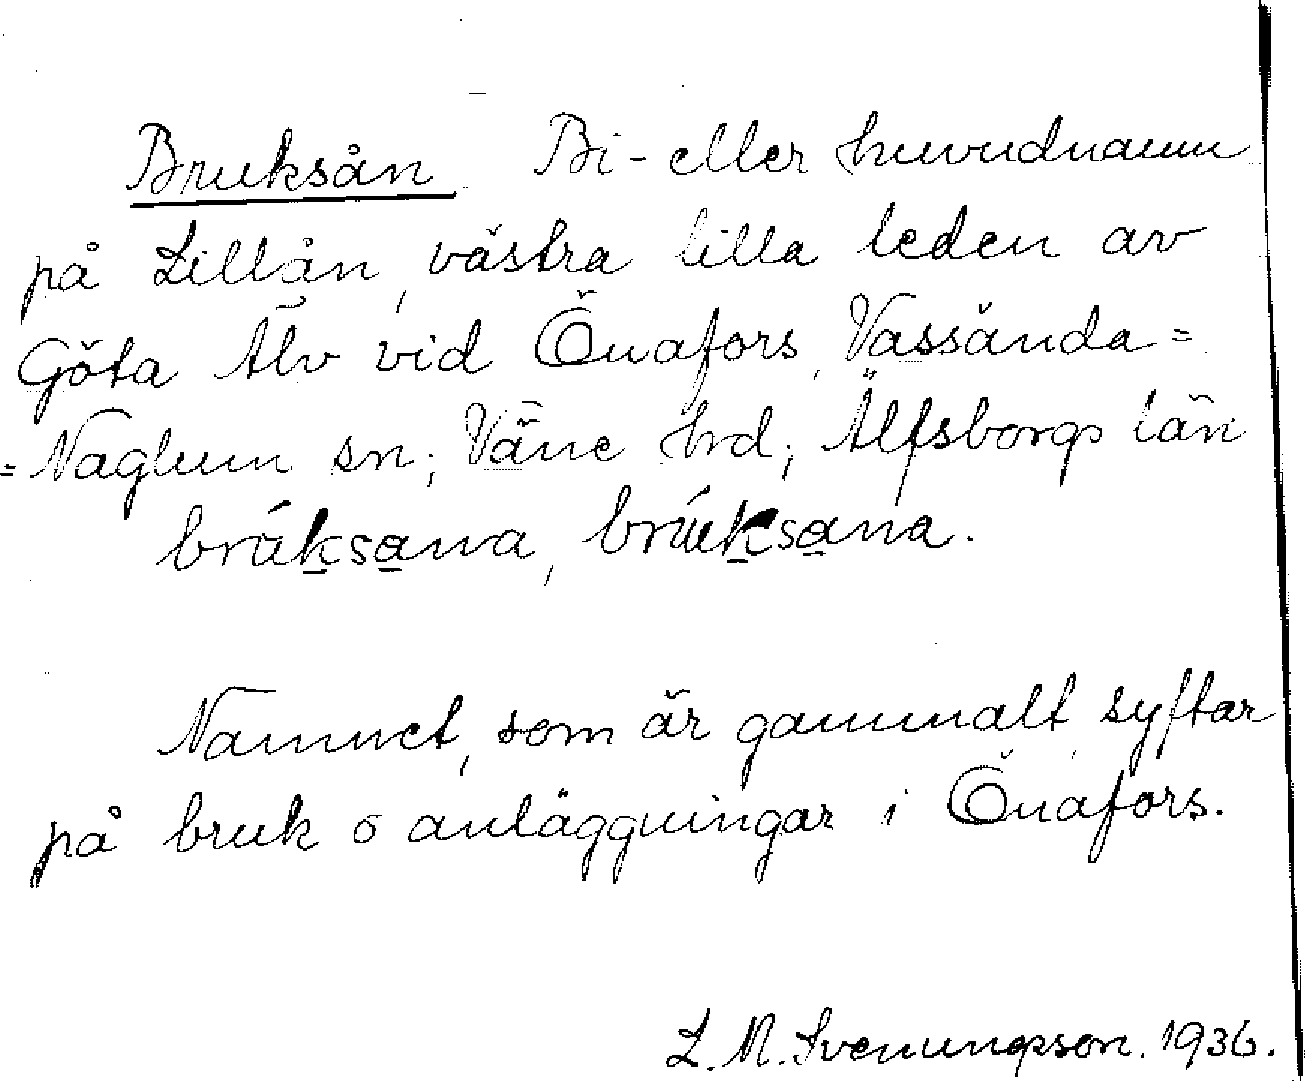 Bruksån Bi- eller huvudnamn
på Lillån, västra lilla leden av
Göta Älv vid Önafors, Vassända=
=Naglum sn; Väne hrd; Älfsborgs län
bráksana, brúuksana.
Namnet, som är gammalt, syftar
på bruk o anläggningar i Önafors.
L. M. Svenungsson. 1936.